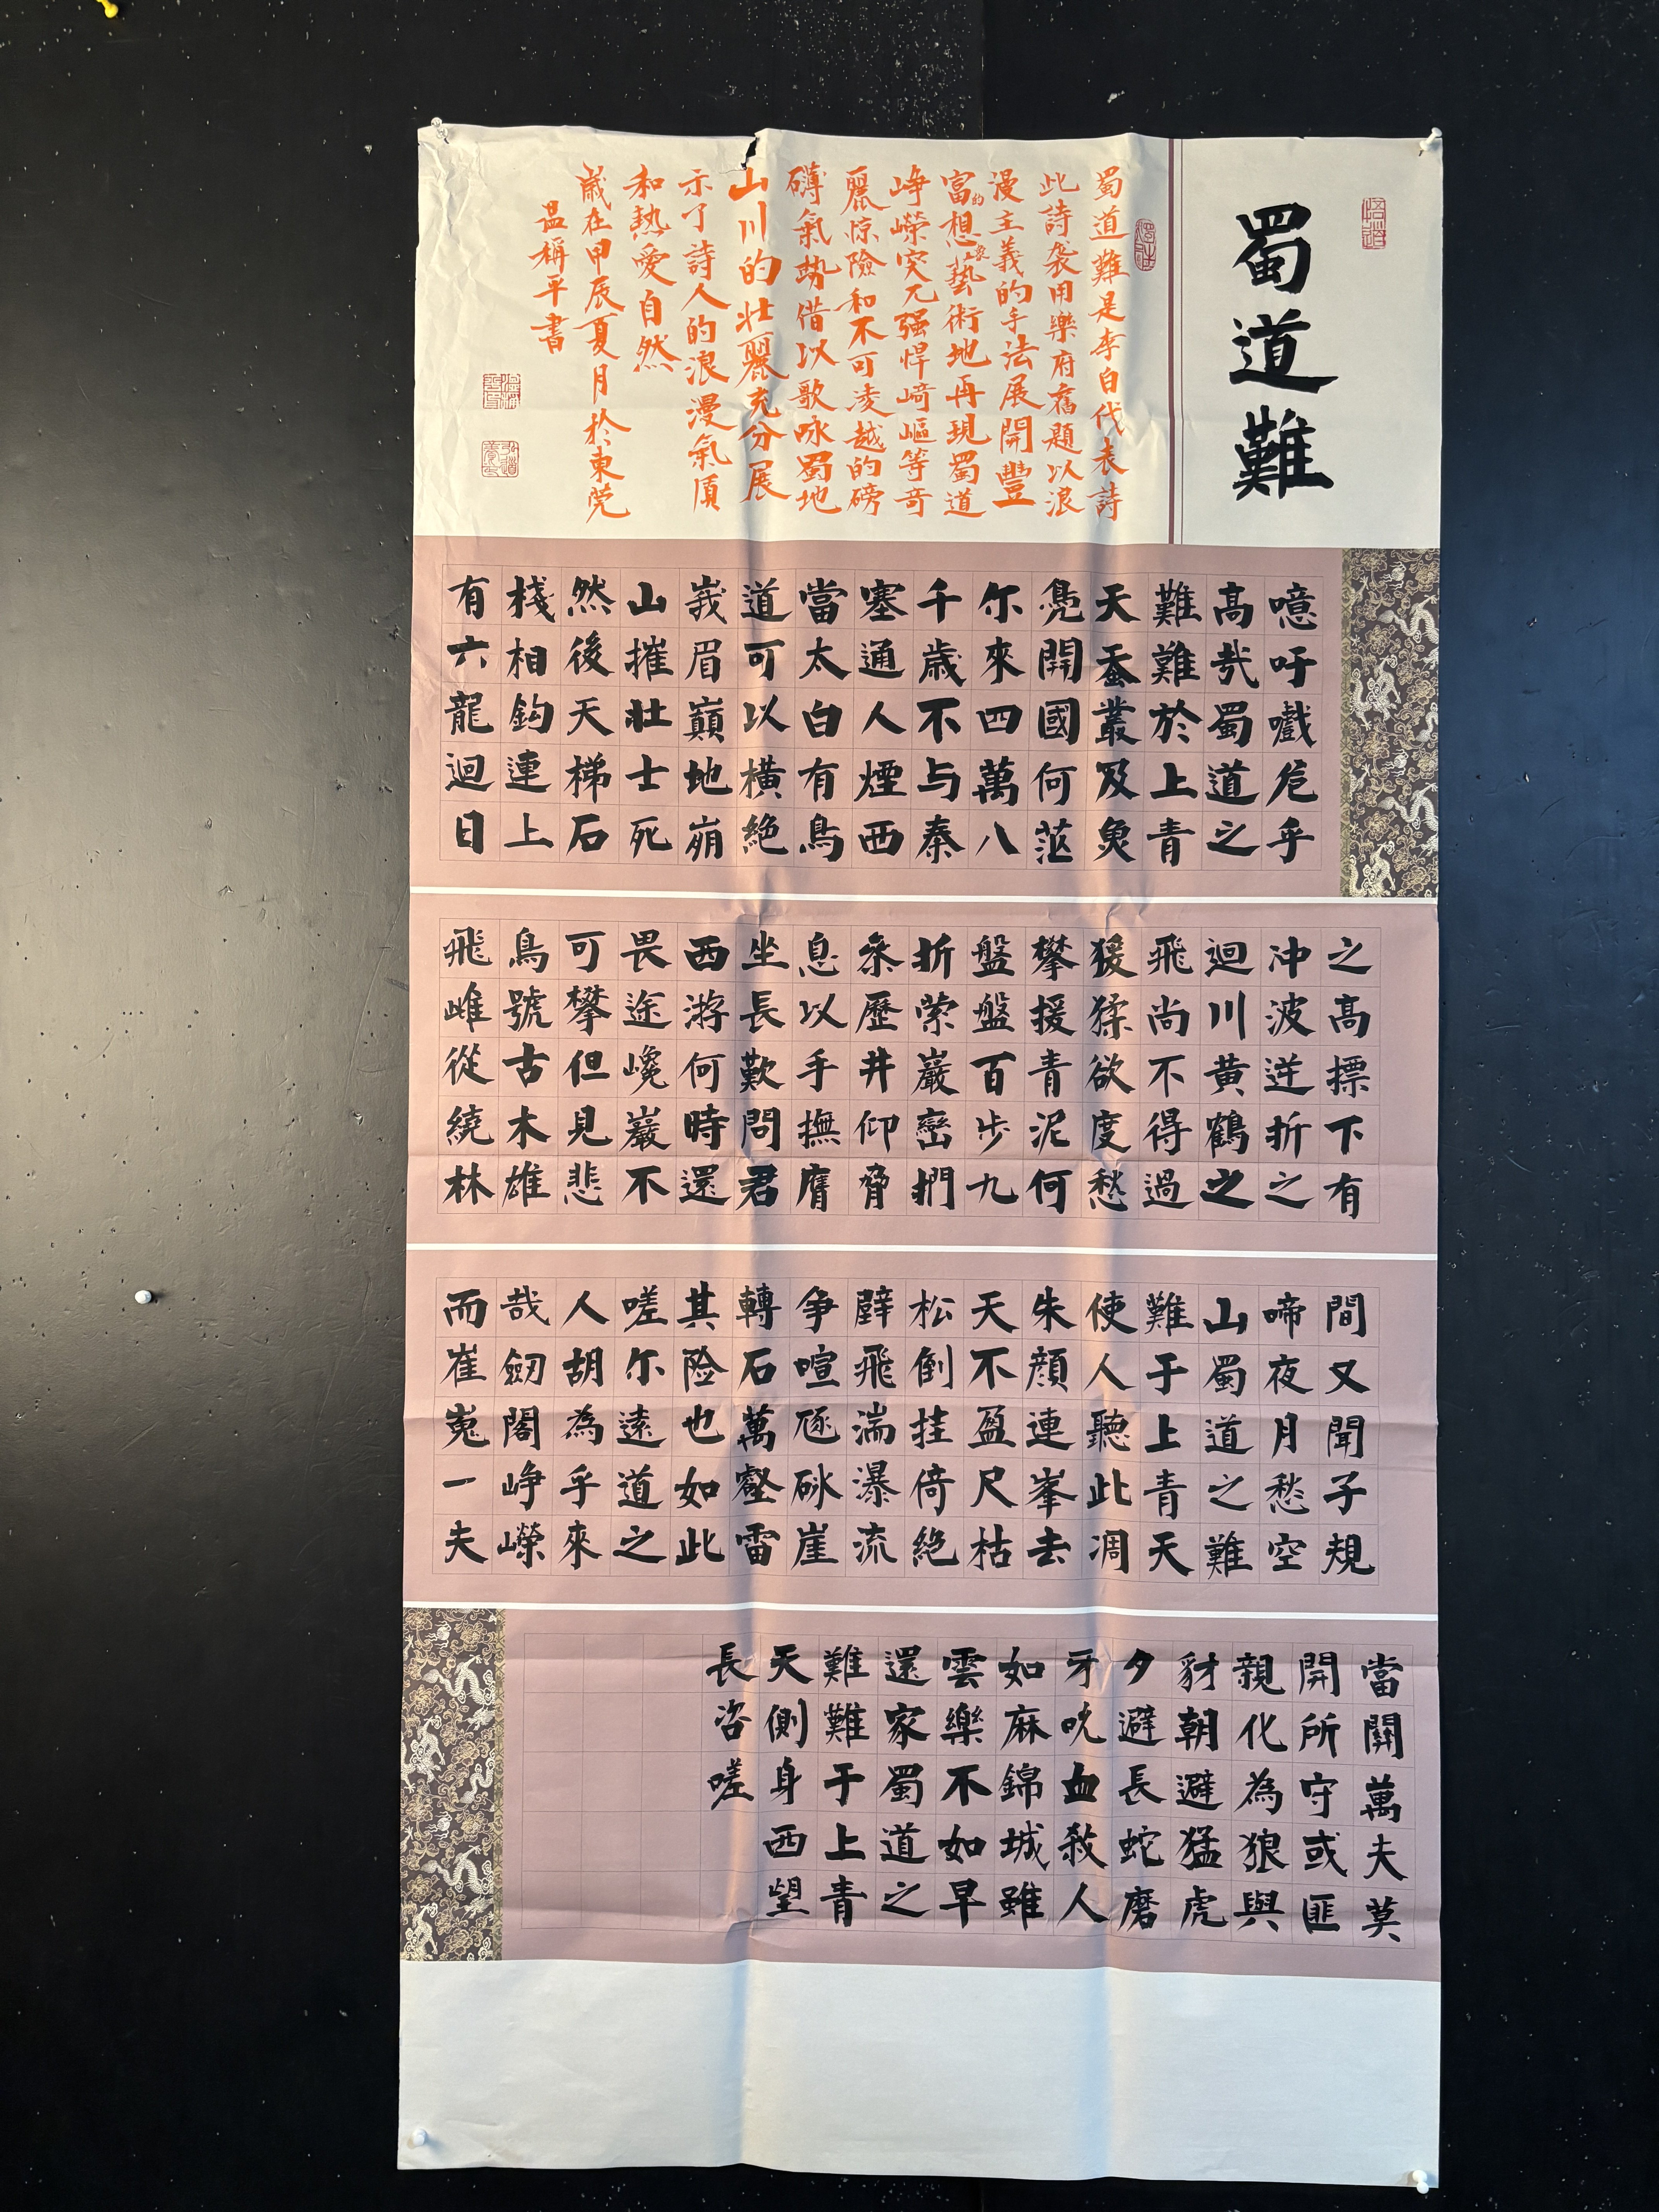 蜀道難
蜀道難是李白代表詩
此詩袭用樂府舊題以浪
漫主義的手法展開豐
富的想象藝術地再現蜀道
峥嶸突兀强悍崎嶇等奇
麗惊險和不可淩越的磅
礴氣勢借以歌咏蜀地
山川的壯麗充分展
示了詩人的浪漫氣質
和熱愛自然
歲在甲辰夏月於東莞
温稱平書
噫吁嚱危乎
高哉蜀道之
難難於上青
天蚕叢及魚
鳧開國何茫
尔來四萬八
千歲不与秦
塞通人煙西
當太白有鳥
道可以橫絶
峩眉巔地崩
山摧壯士死
然後天梯石
棧相鈎連上
有六龍迴日
之高摽下有
沖波逆折之
迴川黃鶴之
飛尚不得過
猨猱欲度愁
攀援青泥何
盤盤百步九
折縈巖巒捫
參歷井仰脅
息以手撫膺
坐長歎問君
西游何時還
畏途巉巖不
可攀但見悲
鳥號古木雄
飛雌從繞林
間又聞子規
啼夜月愁空
山蜀道之難
難于上青天
使人聽此凋
朱顔連峯去
天不盈尺枯
松倒挂倚絶
壁飛湍瀑流
争喧豗砯崖
轉石萬壑雷
其险也如此
嗟尔遠道之
人胡為乎來
哉劒閣峥嶸
而崔嵬一夫
當關萬夫莫
開所守或匪
親化為狼與
豺朝避猛虎
夕避長蛇磨
牙吮血殺人
如麻錦城雖
雲樂不如早
還家蜀道之
難難于上青
天側身西望
長咨嗟